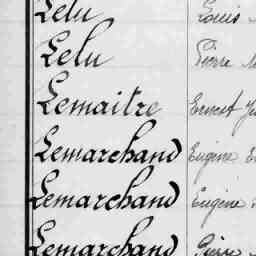 Lelu Louis
Lelu Pierre
Lemaitre Ernest
Lemarchand Eugène
Lemarchand Eugène
Lemarchand Pierre